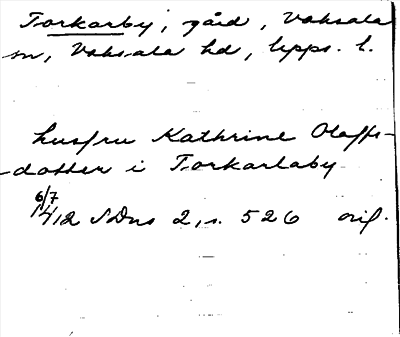 Torkarby, gård, Vaksala
sn, Vaksala hd, Upps. l.
husfru Kathrine Olaffs-
-dotter i Torkarlaby
6/7
1412 SDns 2, s. 526 orig.